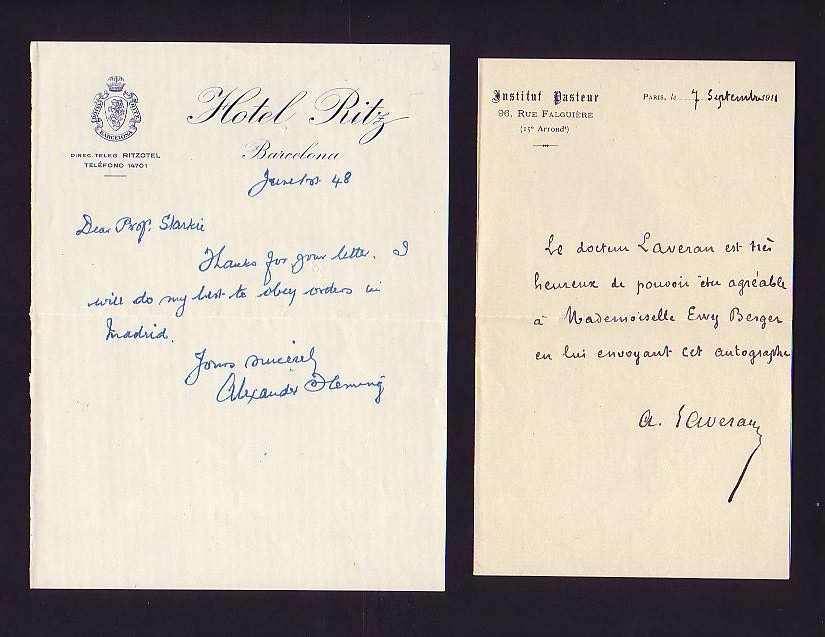 Hotel Ritz
Barcelona
DIREC. TELEG. RITZOTEL
TELÉFONO 14701
June 48
Dear Prof. Starkie
Thanks for your letter. I
will do my best to obey orders in
Madrid.
Yours sincerely
Alexander Fleming
Institut Pasteur
96, RUE FALGUIÈRE
(15e Arrondt)
PARIS, le 7 Septembre 1911
Le docteur Laveran est très
heureux de pouvoir être agréable
à Mademoiselle Emy Berger
en lui envoyant cet autographe
A. Laveran